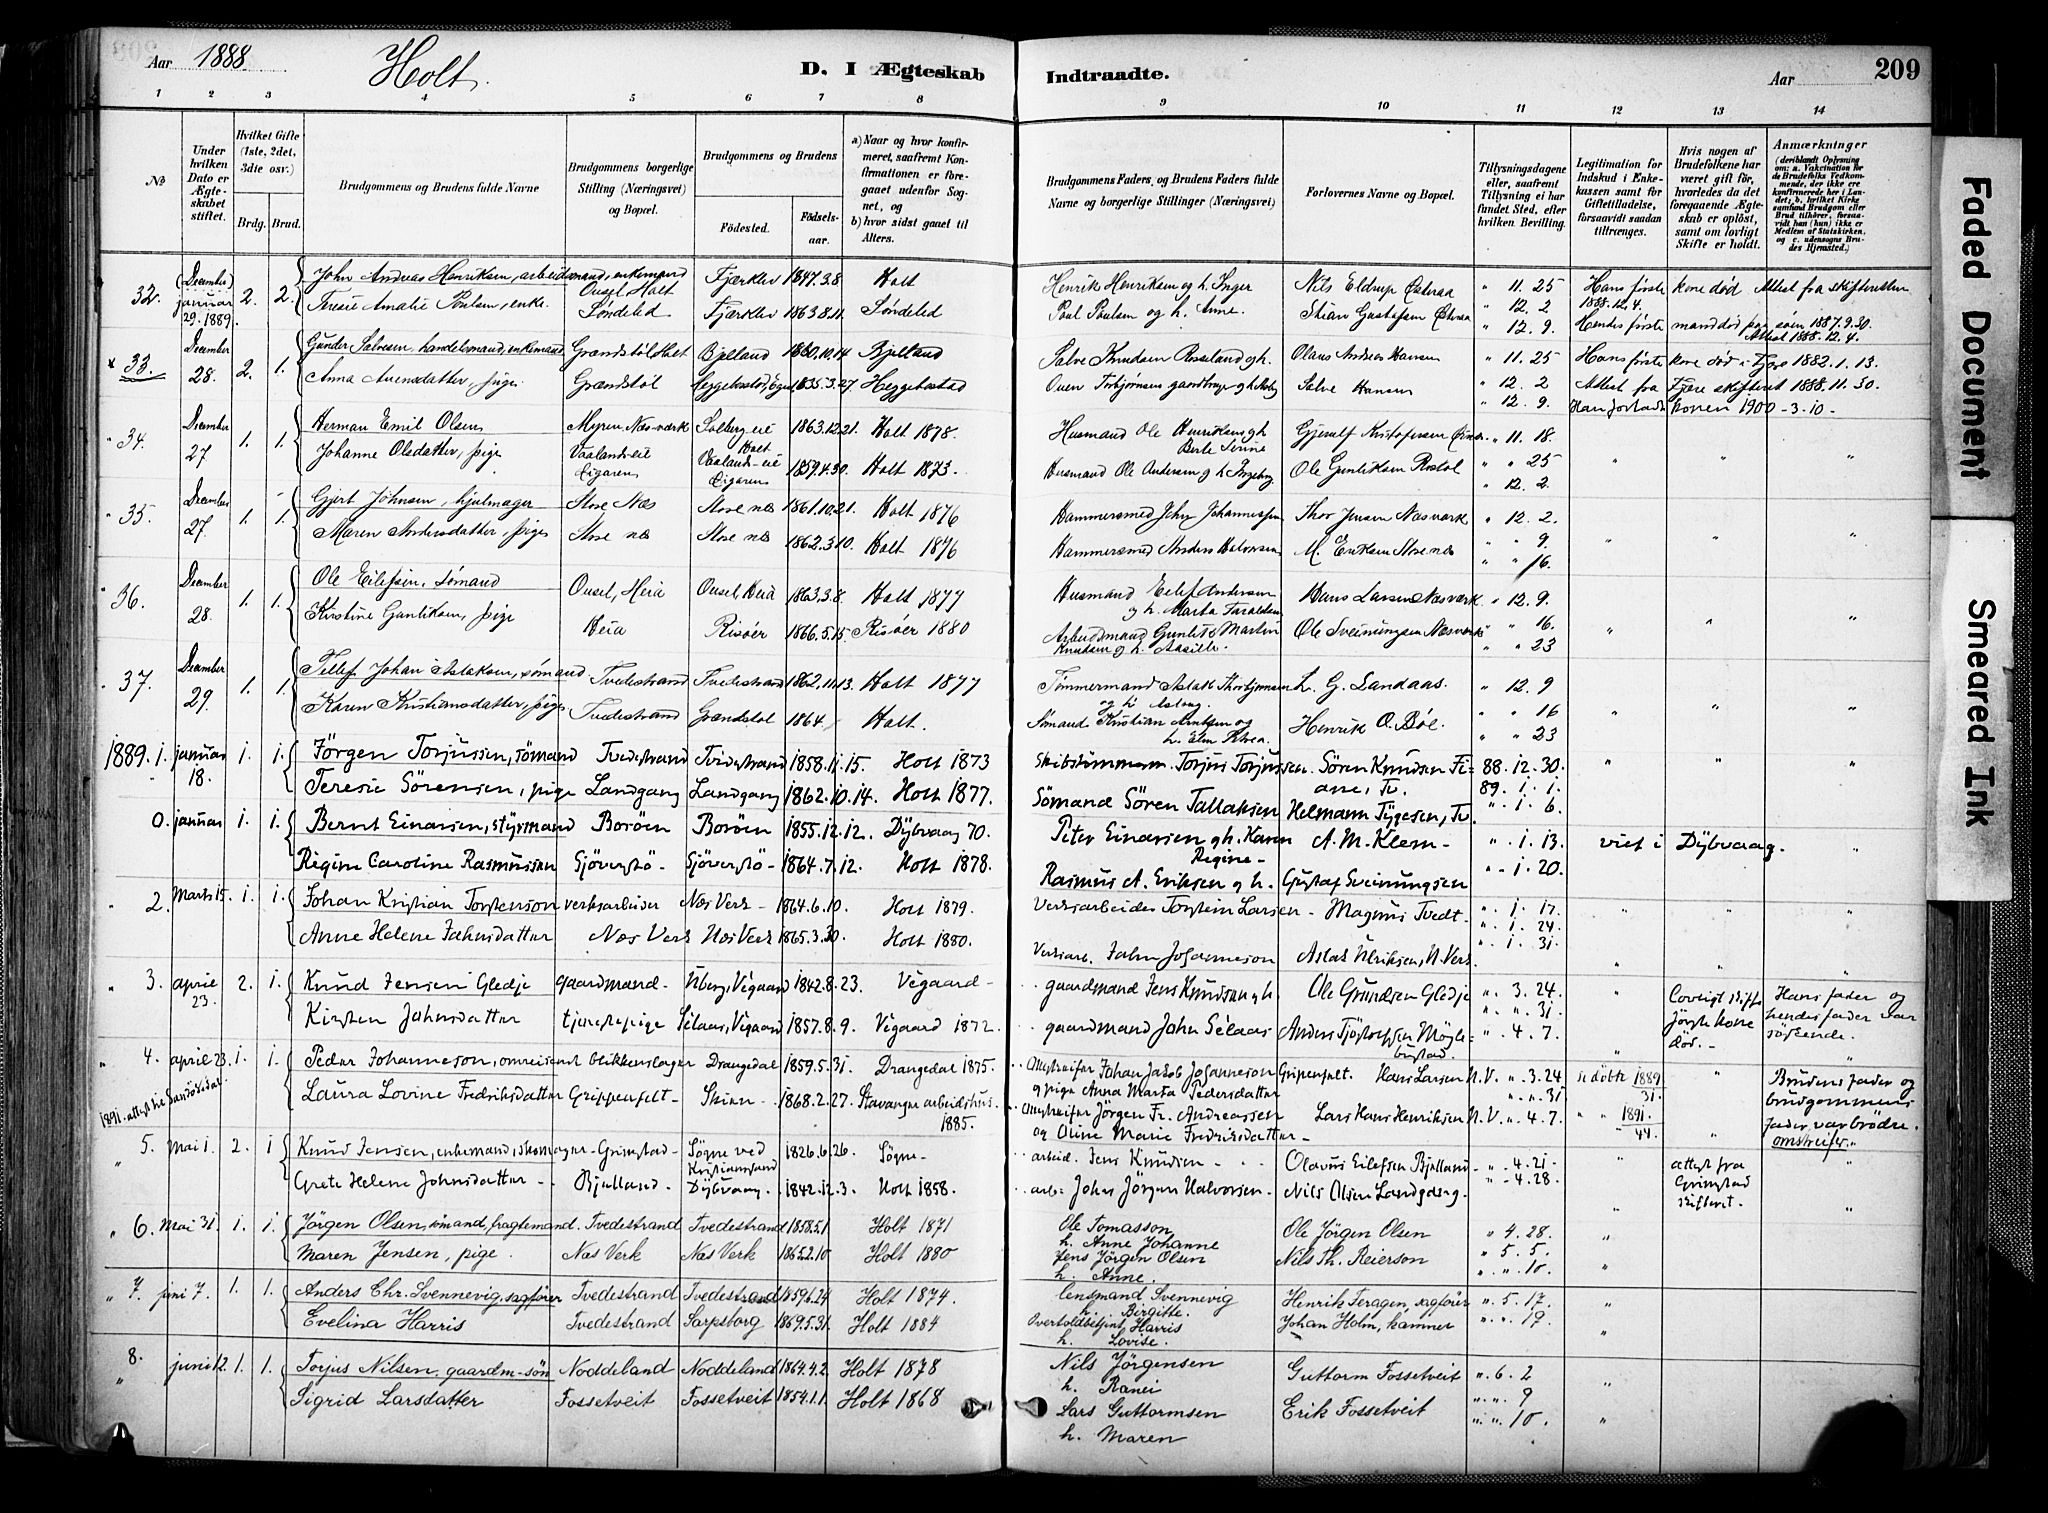 Aar 1888.
Holt.
D. I Ægteskab Indtraadte.
Aar
209
1 2 3 4 5 6 7 8 9 10 11 12 13 14
№
Under hvilken Dato er Ægteskabet stiftet.
Hvilket Gifte (1ste, 2det, 3die osv.)
Brdg. Brud.
Brudgommens og Brudens fulde Navne
Brudgommens borgerlige Stilling (Næringsvei) og Bopæl.
Brudgommens og Brudens
Fødested. Fødselsaar.
a) Naar og hvor konfirmeret, saafremt Konfirmationen er foregaaet udenfor Sognet, og
b) hvor sidst gaaet til Alters.
Brudgommens Faders, og Brudens Faders fulde Navne og borgerlige Stillinger (Næringsvei)
Forlovernes Navne og Bopæl.
Tillysningsdagene eller, saafremt Tillysning ei har fundet Sted, efter hvilken Bevilling.
Legitimation for Indskud i Enkekassen samt for Giftetilladelse, forsaavidt saadan tiltrænges.
Hvis nogen af Brudefolkene har været gift før, hvorledes da det foregaaende Ægteskab er opløst, samt om lovligt Skifte er holdt.
Anmærkninger (deriblandt Oplysning om: a. Vakcination for de Brudefolks Vedkommende, der ikke ere konfirmerede her i Landet; b. hvilket Kirkesamfund Brudgom eller Brud tilhører, forsaavidt han (hun) ikke er Medlem af Statskirken, og c. udensogns Brudes Hjemsted.)
32. (December) januar 29. 1889. 2. 2. John Andreas Henriksen, arbeidsmand, enkemand Ousel, Holt Fjærklev 1847.3.8 Holt Henrik Henriksen og h. Inger Nils Eldrup Østeraa " 11. 25 Hans første kone død Attest fra skifteretten 1888.12.4.
Teresie Amalie Poulsen, enke. Søndeled Fjærklev 1863.8.11. Søndeled Poul Poulsen og h. Anne. Stian Gustafsen Østeraa " 12. 2 " 12. 9. Hendes første mand død paa søen 1887.9.30. Attest 1888.12.4.
x 33. December 28. 2. 1. Gunder Salvesen, handelsmand, enkemand Grændstøl Holt Bjelland 1860.10.14 Bjelland Salve Knudsen Roseland og h. Olaus Andreas Hansen " 11. 25 Hans første kone død i Fjære 1882.1.13.
Anna Auensdatter, pige. Grændstøl Heggebostad 1835.3.27 Heggebostad Ouen Torbjørnsen Salve Hansen " 12. 2 " 12. 9. Attest fra Fjære skifteret 1888.11.30. Han forlod konen 1900-3-10-
" 34. December 27 1. 1. Herman Emil Olsen Myren, Næs værk Solberg eie Holt 1863.12.21. Holt 1878. Husmand Ole Henriksen og h. Berte Serine Gjerulf Kristofersen " 11. 18.
Johanne Olsdatter, pige Vaalandseie Eigaren Vaalands-eie Eigaren 1859.4.30. Holt 1873. Husmand Ole Andersen og h. Ingeborg Ole Gunliksen Rostøl " " 25 " 12. 2.
" 35. December 27. 1. 1. Gjert Johnsen, hjulmager Store Næs Store næs 1861.10.21. Holt 1876 Hammersmed John Johannessen Thor Jensen Næsværk " 12. 2.
Maren Andersdatter, pige Store næs Store næs 1862.3.10. Holt 1876 Hammersmed Anders Halvorsen M. Eriksen Store næs " " 9. " " 16.
" 36. December 28. 1. 1. Ole Eilefsen, sømand Ousel, Heia Ousel, Heia 1863.3.8. Holt 1877 Husmand Eilef Andersen og h. Marta Taraldsen Hans Larsen Næsværk " 12. 9.
Kirstine Gunliksen, pige Heia Risøer 1866.5.15. Risøer 1880 Arbeidsmand Gunlik Martin Knudsen og h. Aasille. Ole Sveinungsen Næsværk " " 16. " " 23
" 37. December 29. 1. 1. Tellef Johan Aslaksen, sømand Tvedestrand Tvedestrand 1862.11.13. Holt 1877 Tømmermand Aslak Thorbjørnsen og h. Aslaug. L. G. Landaas. " 12. 9
Karen Kristiansdatter, pige Tvedestrand Grændstøl 1864. Holt. Sømand Kristian Arntsen og h. Elen Petrea. Henrik O. Bøe. " " 16 " " 23
1889. 1. januar 18. 1. 1. Jörgen Torjussen, sömand Tvedestrand Tvedestrand 1858.11.15. Holt 1873 Skibstömmerm. Torjus Torjussen. Sören Knudsen Fiane, Tv. 88. 12. 30. 89. 1. 1.
Teresie Sörensen, pige Landgang Landgang 1862.10.14. Holt 1877. Sömand Sören Tallaksen Helmann Tygesen, Tv. " 1. 6.
0. januar 1. 1. Bernt Einarsen, styrmand Boröen Boröen 1855.12.12. Dybvaag 70. Peter Einarsen og h. Karen Regine - A. M. Klem - " 1. 13. viet i Dybvaag.
Regine Caroline Rasmussen Sjöverstö - Sjöverstö - 1864.7.12. Holt 1878. Rasmus A. Eriksen og h. Gustaf Sveinungsen " 1. 20.
" 2. Marts 15. 1. 1. Johan Kristian Torstenson verksarbeider Næs Verk - 1864.6.10. Holt 1879. Verksarbeider Torstein Larsen - Magnus Tvedt - " 1. 17. " 1. 24. " 1. 31.
Anne Helene Jahnsdatter Næs Verk Næs Verk 1865.3.30. Holt 1880. Verksarb. Jahn Johannesson Aslak Ulriksen, N. Verk.
" 3. april 23. 2. 1. Knud Jensen Gledje gaardmand - Uberg, Vegaard 1842.8.23. Vegaard - gaardmand Jens Knudsen og h. Ole Gundsen Gledje " 3. 24. " " 31. Lovligt skifte förste kone död. - Hans fader og hendes fader var söskende.
Kirsten Jahnsdatter tjenestepige Selaas, Vegaard 1857.8.9. Vegaard 1872. gaardmand John Selaas Anders Tjöstolfsen " 4. 7.
" 4. april 23. 1. 1. Peder Johanneson, omreisent blikkenslager Drangedal 1859.5.31. Drangedal 1875. Omstreifer Johan Jakob Johanneson Gripenfelt. og pige Anna Marta Pedersdatter Hans Larsen N. V. " 3. 24 " " 31 se döbte 1889 31. Brudens fader og brudgommens fader var brödre. omstreifer
Laura Lovine Fredriksdatter Grippenfelt - Skien - 1868.2.27. Stavanger arbeidshus. 1885. Omstreifer Jörgen Fr. Andreassen og Oline Marie Fredriksdatter - Lars Hans Henriksen N. V. " 4. 7. " " 1891. 44.
" 5. Mai 1. 2. 1 Knud Jensen, enkemand, skomager - Grimstad - Sögne ved Kristianssand 1826.6.26. Sögne - arbeid. Jens Knudsen - Olavus Eilefsen Bjelland - " 4. 21 attest fra Grimstad skifteret.
Grete Helene Johnsdatter - Bjelland - Dybvaag. 1842.12.3. Holt 1858. arb. Johan Jörgen Halvorsen. Nils Olsen Landgang. " 4. 28.
" 6. Mai 31 1. 1. Jörgen Olsen, sömand, fragtemand. Tvedestrand Tvedestrand 1858.5.1 Holt 1871 Ole Tomasson h. Anne Johanne Ole Jörgen Olsen " 4. 28.
Maren Jensen, pige. Næs Verk Næs Verk 1865.2.10 Holt 1880 Jens Jörgen Olsen h. Anne. Nils Th. Reierson " 5. 5. " " 10.
" 7. juni 7. 1. 1. Anders Chr. Svennevig, sagfører Tvedestrand Tvedestrand 1859.6.24 Holt 1874. Lensmand Svennevig h. Birgitte. Henrik Feragen, sagfører " 5. 17.
Evelina Harris Tvedestrand Sarpsborg 1869.5.31. Holt 1884 Overtoldbetjent Harris h. Lovise. Johan Holm, kæmner " " 19.
8. " juni 12. 1. 1. Torjus Nilsen, gaardm-søn Noddeland Noddeland 1864.4.2. Holt 1878 Nils Jörgensen h. Ranei Guttorm Fossetveit " 6. 2
Sigrid Larsdatter Fossetveit Fossetveit 1854.1.1. Holt 1868 Lars Guttormsen h. Maren Erik Fossetveit " " 9 " " 10.
Faded Document
Smeared Ink